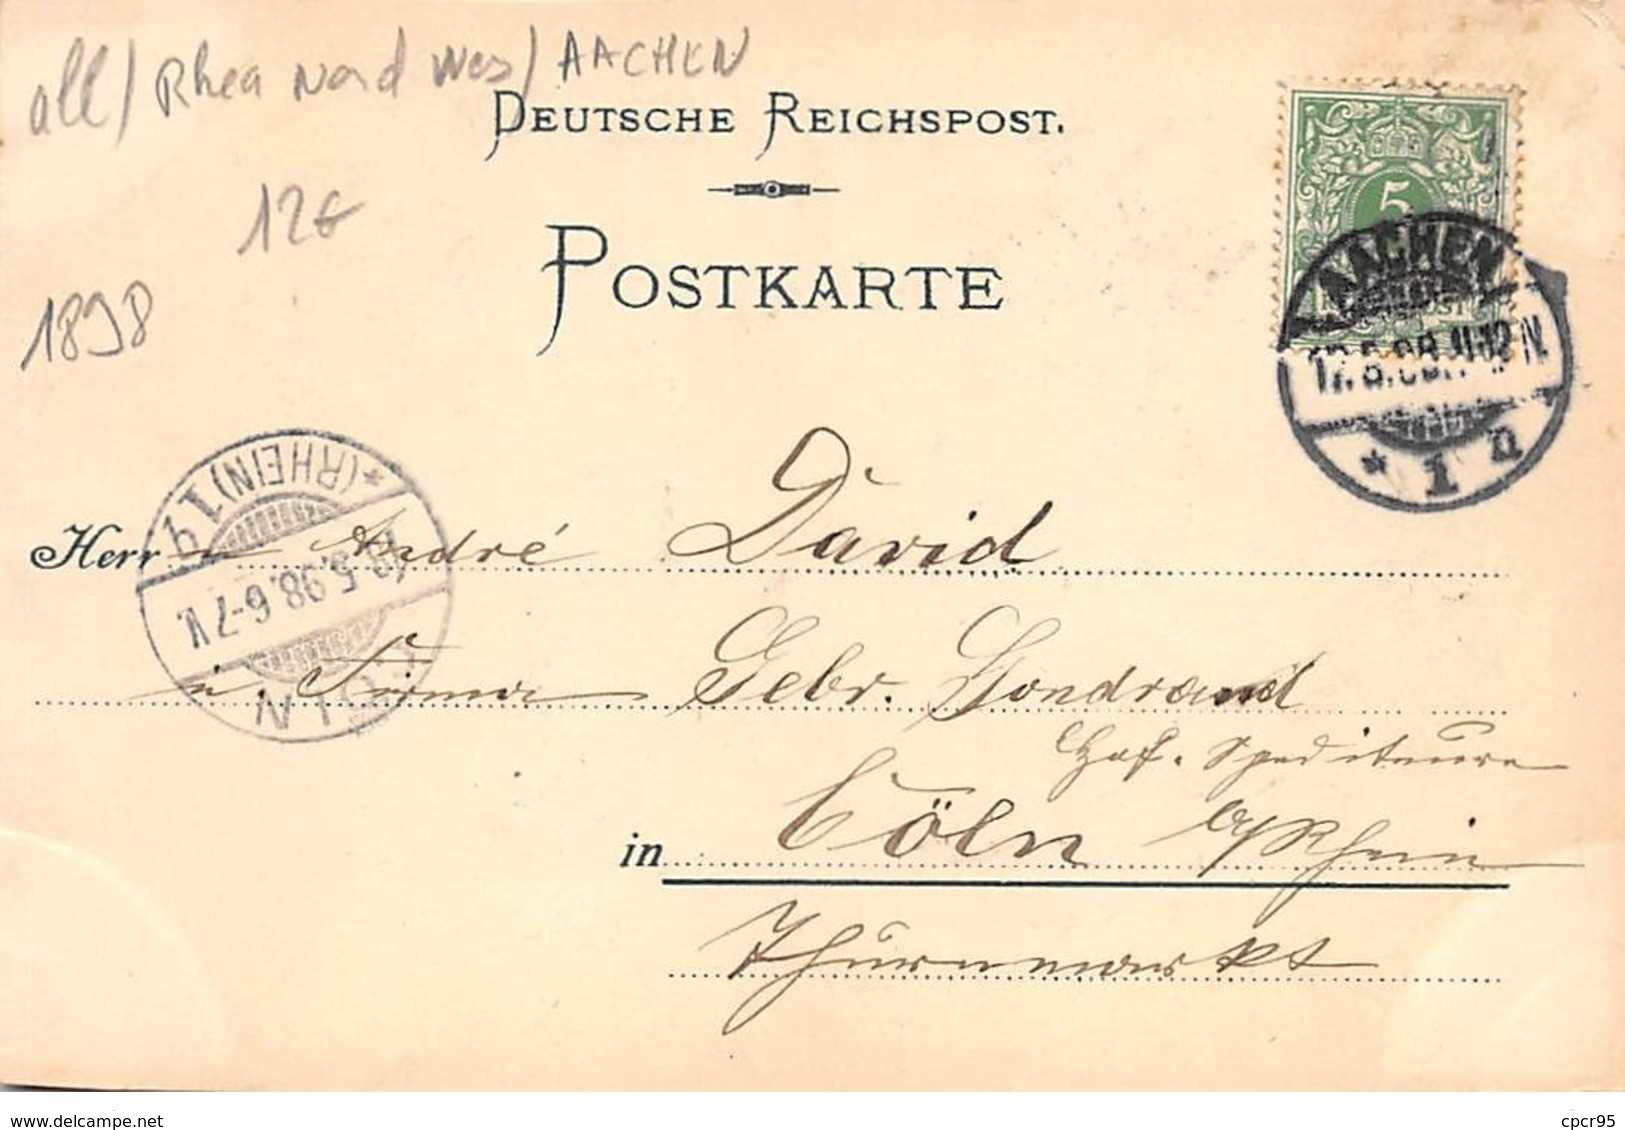 all / Rhea Nord Wes / AACHEN
DEUTSCHE REICHSPOST.
12€
POSTKARTE
1898
5
AACHEN
17.5.98. 11-12 V.
* 1 a
* (RHEIN) 1 q
5.98. 6-7 V.
CÖLN
Herrn André David
i. Firma Gebr. Gondrand
Hof. Spediteure
in Cöln a/Rhein
Thurnmarkt
delcampe.net
cpcr95